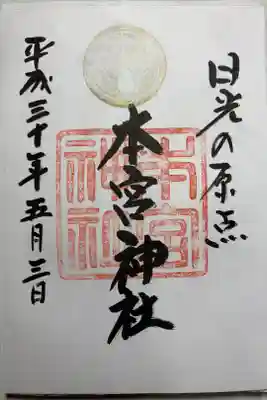 日光の原点
本宮神社
平成三十年五月三日
本宮
神社